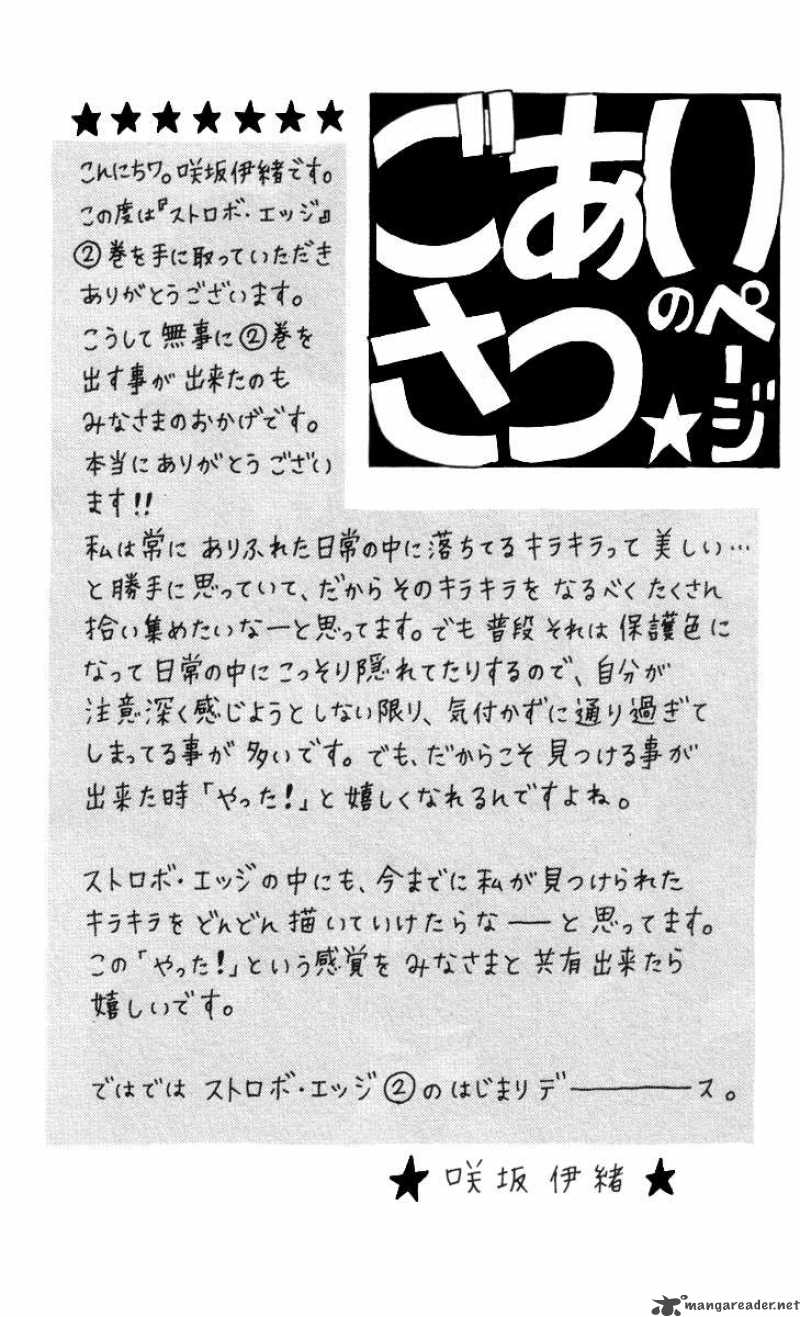 ごあい
さつ
のページ
こんにちワ。咲坂伊緒です。
この度は『ストロボ・エッジ』
②巻を手に取っていただき
ありがとうございます。
こうして無事に②巻を
出す事が出来たのも
みなさまのおかげです。
本当にありがとうござい
ます!!
私は常に ありふれた日常の中に落ちてるキラキラって美しい…
と勝手に思っていて、だからそのキラキラを なるべくたくさん
拾い集めたいなーと思ってます。でも普段それは保護色に
なって日常の中にこっそり隠れてたりするので、自分が
注意深く感じようとしない限り、気付かずに通り過ぎて
しまってる事が多いです。でも、だからこそ見つける事が
出来た時「やった!」と嬉しくなれるんですよね。
ストロボ・エッジの中にも、今までに私が見つけられた
キラキラをどんどん描いていけたらな――と思ってます。
この「やった!」という感覚をみなさまと共有出来たら
嬉しいです。
ではでは ストロボ・エッジ②のはじまりデ――――ス。
★咲坂伊緒★
mangareader.net